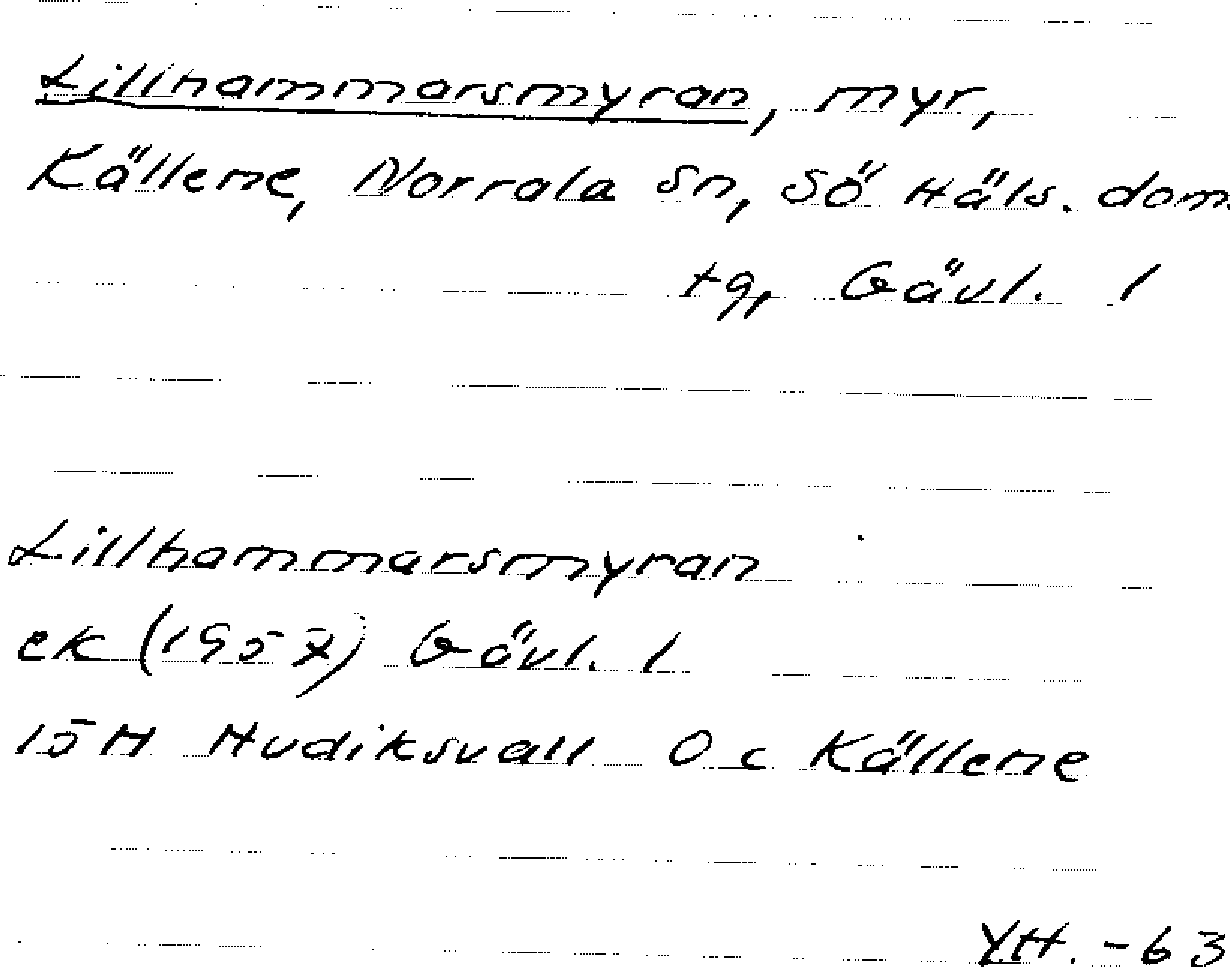 Lillhammarsmyran, myr,
Källene, Norrala sn, Sö Häls. dom.
tg, Gävl. l
Lillhammarsmyran
ek (1957) Gävl. l
15H Hudiksvall 0 c Källene
YH. -63